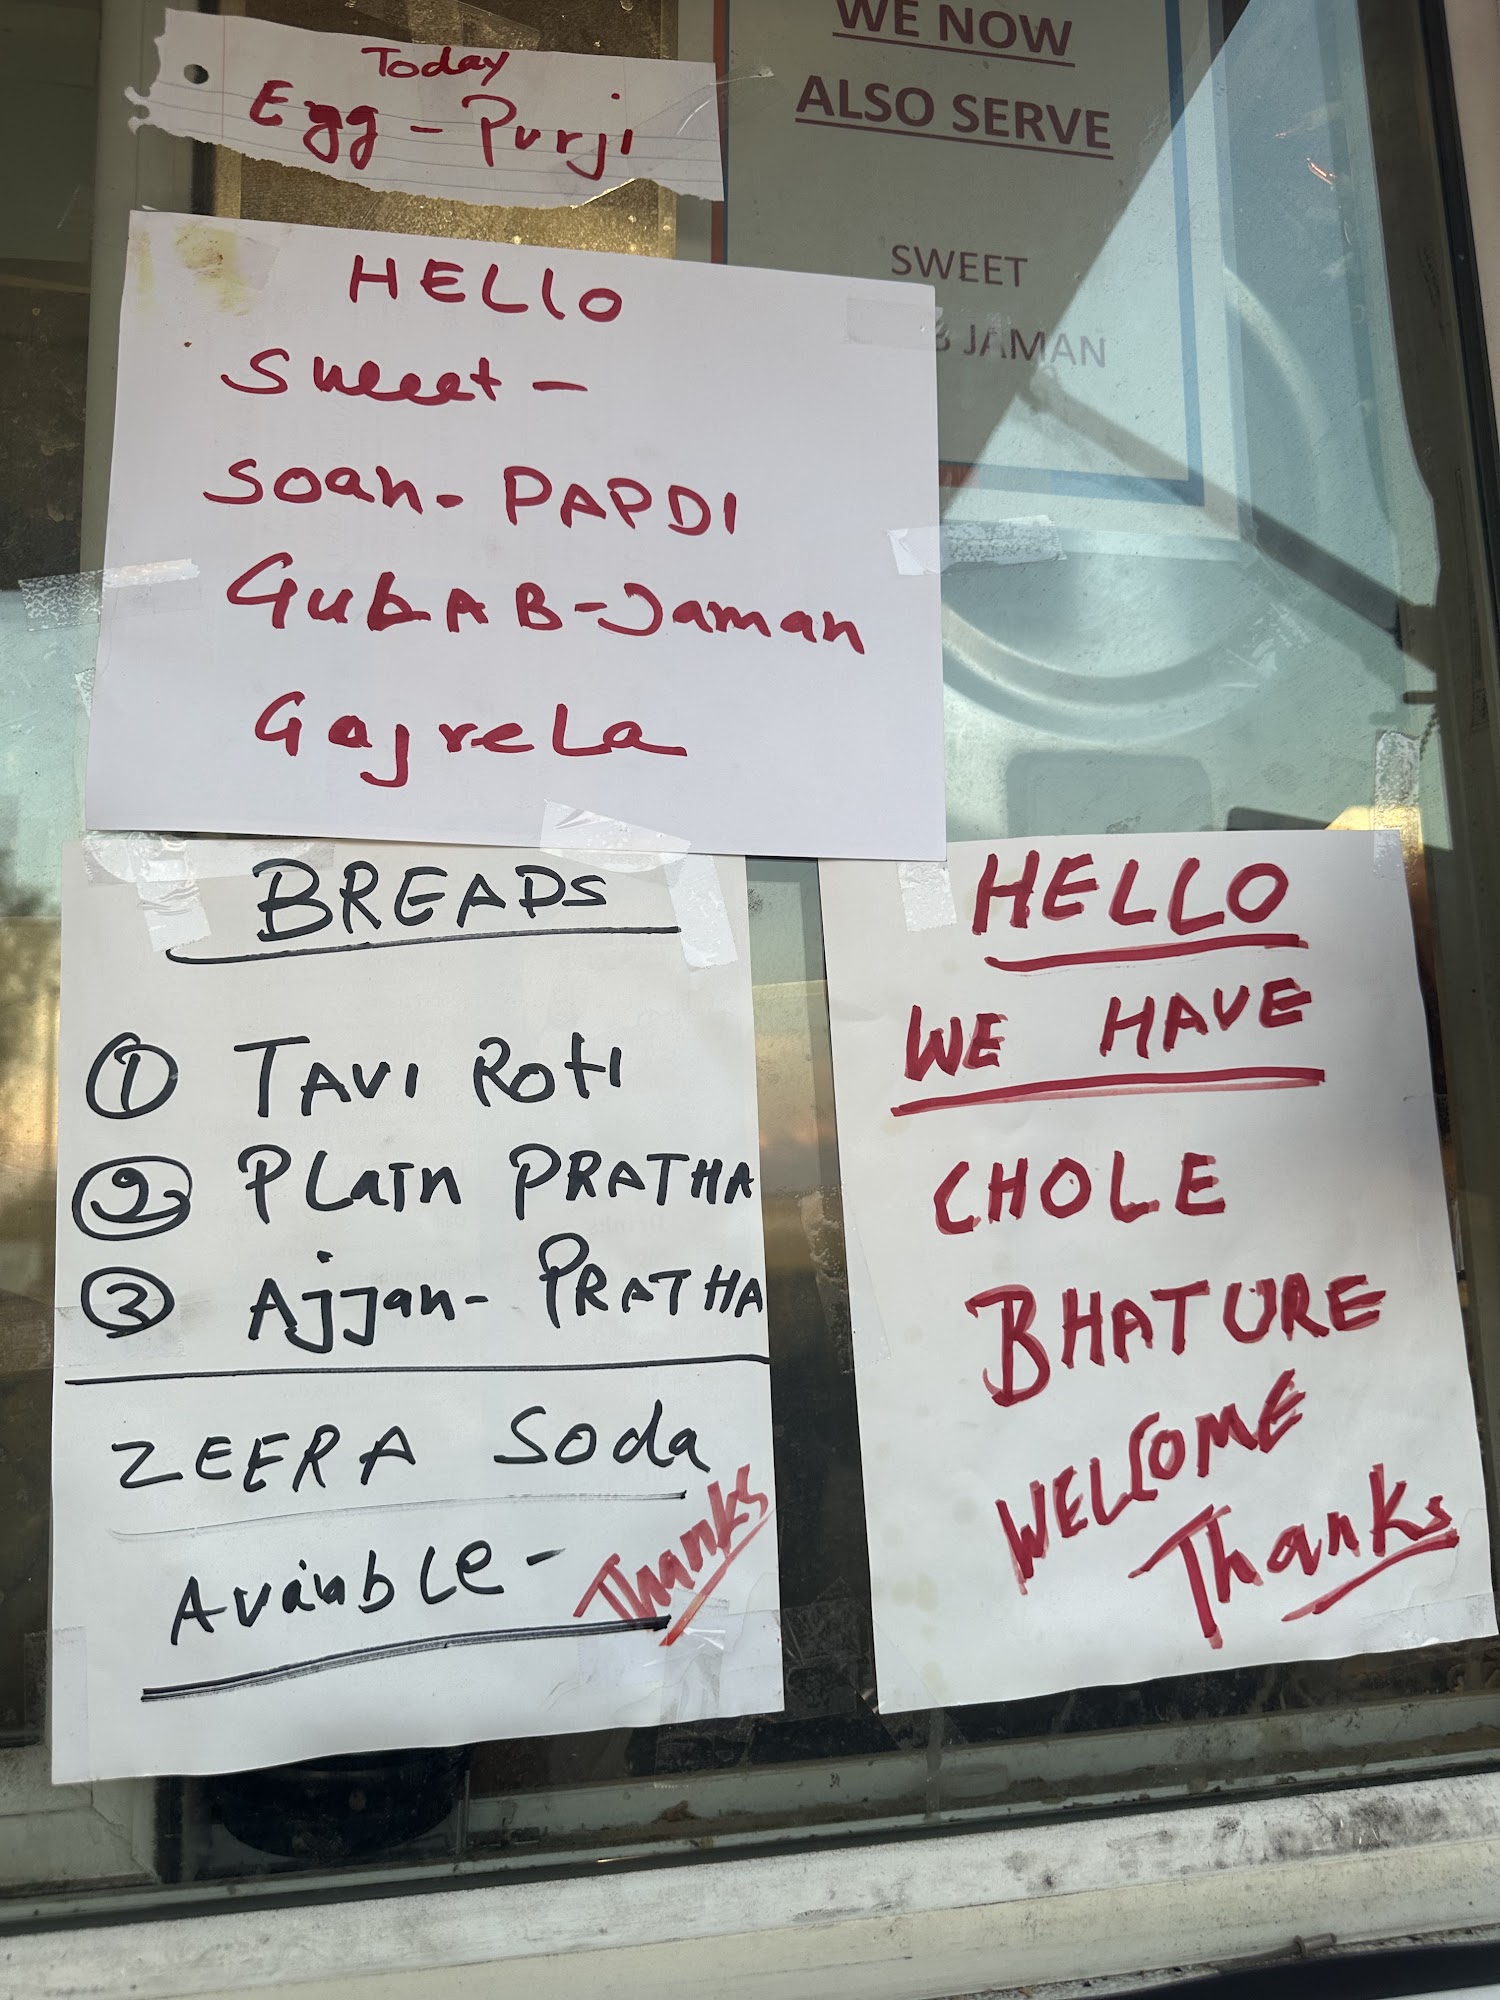 Today
Egg - Purji
WE NOW
ALSO SERVE
SWEET
B JAMAN
HELLO
Sweet -
Soan - PAPDI
GULAB - Jaman
Gajrela
BREADS
① TAVI Roti
② PLain PRATHA
③ Ajjan - PRATHA
ZEERA Soda
AvaiabLe -
Thanks
HELLO
WE HAVE
CHOLE
BHATURE
WELCOME
Thanks